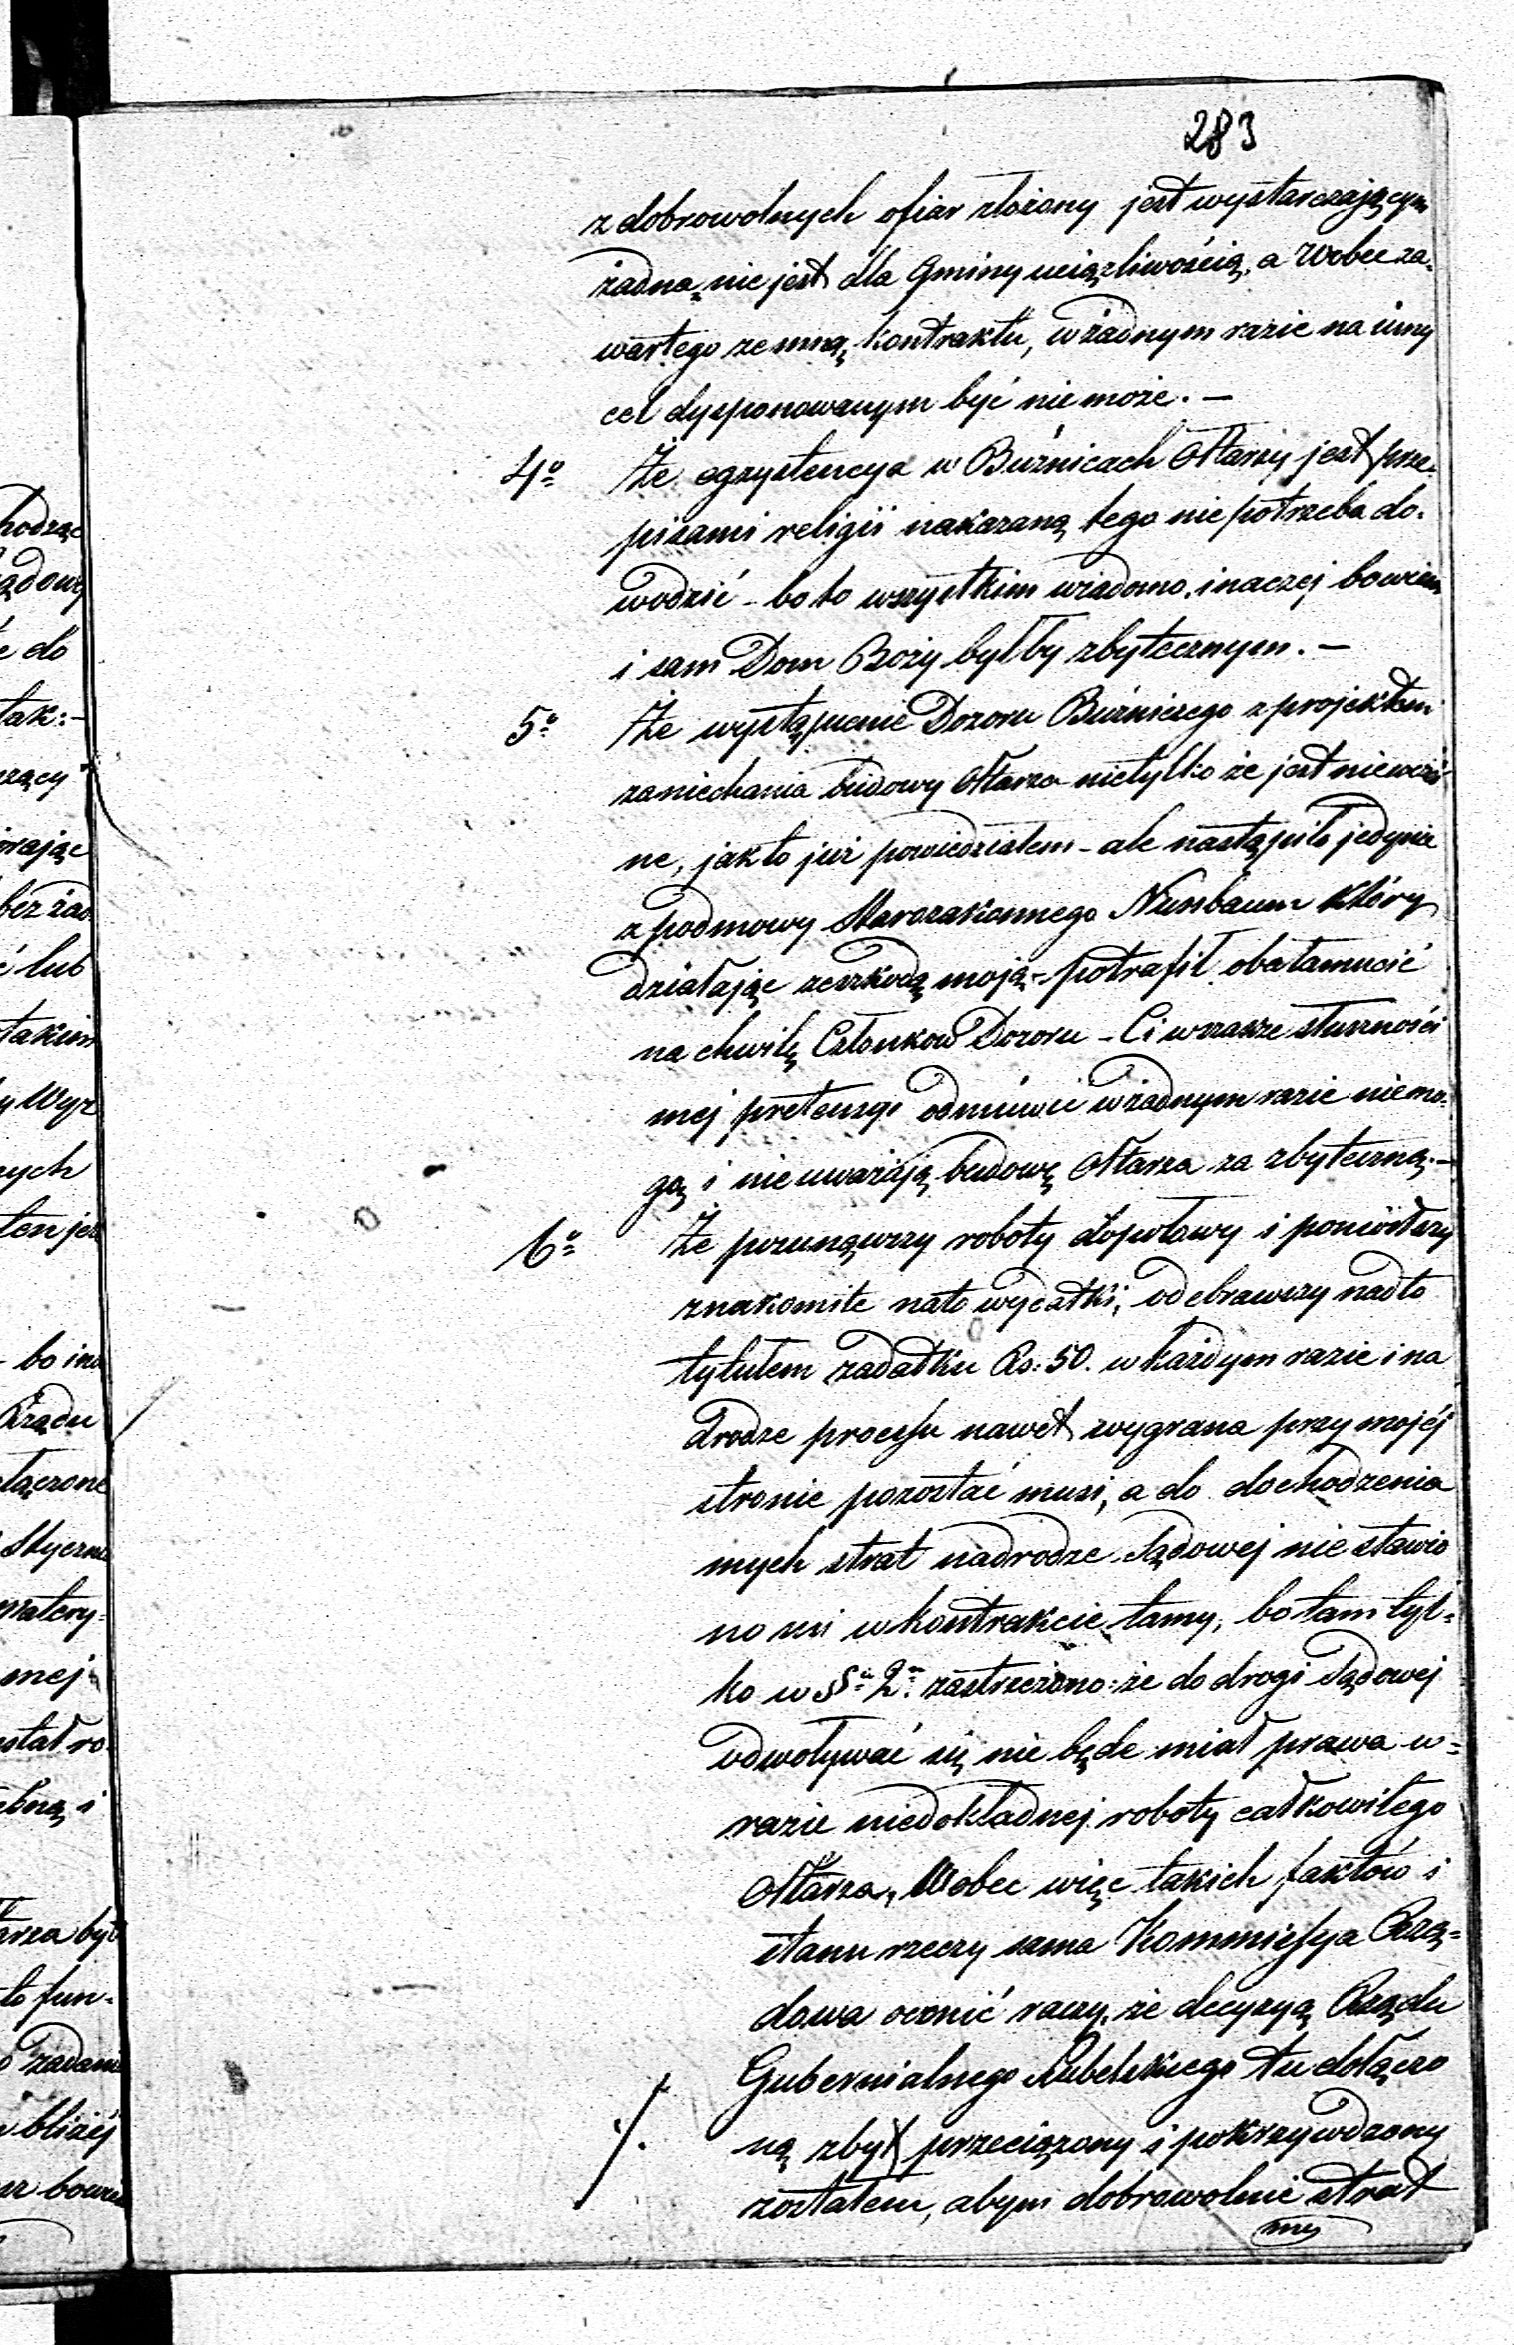 283
z dobrowolnych ofiar złożony jest wystarczającym
żadną nie jest dla Gminy uciążliwością, a Wobec za-
wartego ze mną kontraktu, w żadnym razie na inny
cel dysponowanym być nie może. —
4º Że egzystencya w Bużnicach Ołtarzy jest prze-
pisami religii nakazaną tego nie potrzeba do-
wodzić - bo to wszystkim wiadomo, inaczej bowiem
i sam Dom Boży byłby zbytecznym. —
5º Że wystąpienie Dozoru Bużniczego z projektem
zaniechania budowy Ołtarza nietylko że jest niewcze-
ne, jak to już powiedziałem - ale nastąpiło jedynie
z podmowy Starozakonnego Nusbaum który
działając ze szkodą moją - potrafił obałamucić
na chwilę Członków Dozoru - Ci wszakże słuszności
mej pretensyi odmówić w żadnym razie niemo-
gą i nie uważają budowę Ołtarza za zbyteczną. —
6º Że posunąwszy roboty do połowy i poniósłszy
znakomite na to wydatki, odebrawszy nadto
tytułem zadatku Rs: 50. w każdym razie i na
drodze processu nawet wygrana przy mojéj
stronie pozostać musi, a do dochodzenia
mych strat na drodze Sądowej nie stawio
no mi w kontrakcie tamy, bo tam tyl-
ko w §ie 2m zastrzeżono: że do drogi Sądowej
odwoływać się nie będe miał prawa w-
razie niedokładnej roboty całkowitego
Ołtarza, Wobec więc takich faktów i
stanu rzeczy sama Kommissya Rzą-
dowa ocenić raczy, że decyzyą Rządu
Gubernialnego Lubelskiego tu dołączo
./. ną zbyt przeciążony i pokrzywdzony
zostałem, abym dobrowolnie strat
my
hodząc
do
tak:-
rając
bez żad
lub
takim
Wyz
ych
ten jes
- bo ina
Rządu
łączone
Stycznia
matery-
mej
i
arza był
to fun-
żadani
bliżéj
bowie